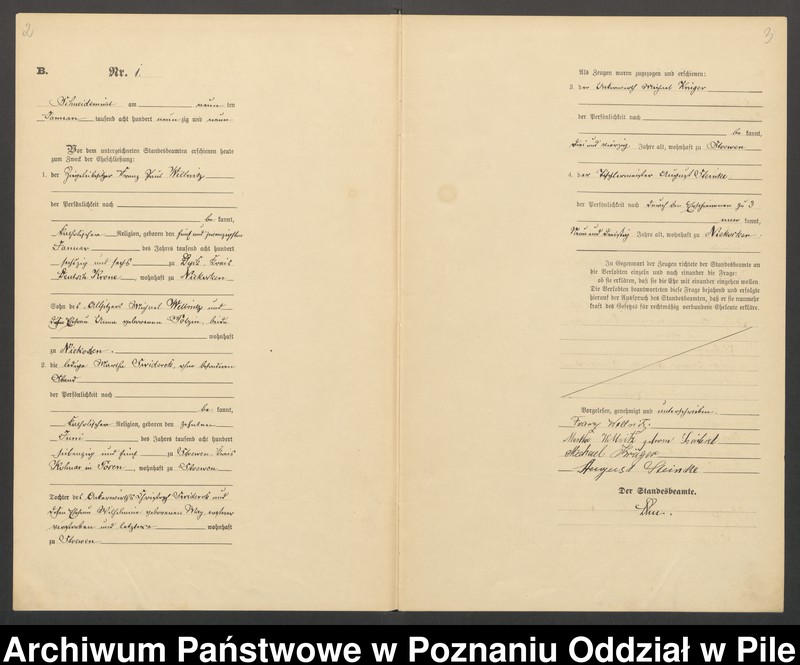 2
B. Nr. 1.
Schneidemühl am neun ten
Januar tausend acht hundert neun zig und neun
Vor dem unterzeichneten Standesbeamten erschienen heute
zum Zweck der Eheschließung:
1. der Ziegeleibesitzer Franz Paul Wellnitz
der Persönlichkeit nach
be kannt,
katholischer Religion, geboren den fünf und zwanzigsten
Januar des Jahres tausend acht hundert
sechszig und sechs zu Dyck Kreis
Deutsch Krone, wohnhaft zu Nickosken
Sohn des Altsitzers Michael Wellnitz und
Anna geborenen Polzin, beide
wohnhaft
zu Nickosken.
2. die ledige Martha ohne besonderen
Stand
der Persönlichkeit nach
be kannt,
katholischer Religion, geboren den zehnten
Juni des Jahres tausend acht hundert
siebenzig und fünf zu Stoewen Kreis
Kolmar in Posen, wohnhaft zu Stoewen
Tochter des Ackerwirths und
Wilhelmine geborenen
verstorben und letztere wohnhaft
zu Stoewen
3
Als Zeugen waren zugezogen und erschienen:
3. der Ackerwirth Michael Krüger
der Persönlichkeit nach
be kannt,
drei und vierzig Jahre alt, wohnhaft zu Stoewen
4. der Tischlermeister August Steinke
der Persönlichkeit nach durch den Erschienenen zu 3
aner kannt,
neun und dreißig Jahre alt, wohnhaft zu Nickosken.
In Gegenwart der Zeugen richtete der Standesbeamte an
die Verlobten einzeln und nach einander die Frage:
ob sie erklären, daß sie die Ehe mit einander eingehen wollen.
Die Verlobten beantworteten diese Frage bejahend und erfolgte
hierauf der Ausspruch des Standesbeamten, daß er sie nunmehr
kraft des Gesetzes für rechtmäßig verbundene Eheleute erkläre.
Vorgelesen, genehmigt und unterschrieben.
Franz Wellnitz.
Martha Wellnitz geborne
Michael Krüger
August Steinke
Der Standesbeamte.
Archiwum Państwowe w Poznaniu Oddział w Pile